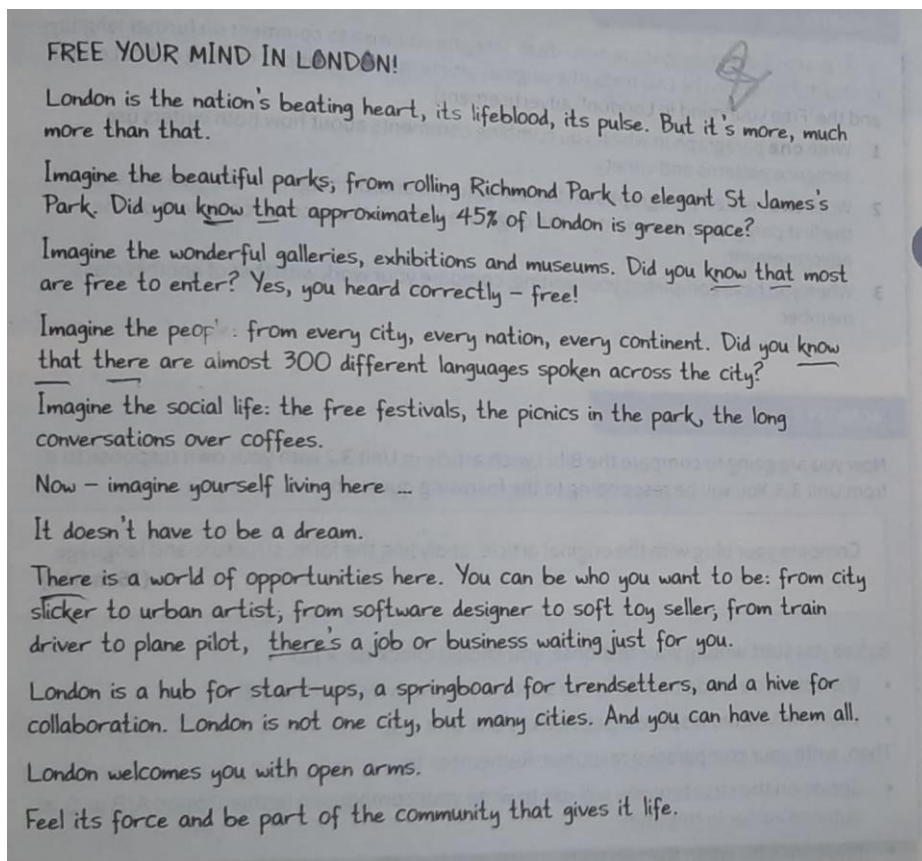 FREE YOUR MIND IN LONDON!
London is the nation's beating heart, its lifeblood, its pulse. But it's more, much
more than that.
Imagine the beautiful parks, from rolling Richmond Park to elegant St James's
Park. Did you know that approximately 45% of London is green space?
Imagine the wonderful galleries, exhibitions and museums. Did you know that most
are free to enter? Yes, you heard correctly – free!
Imagine the from every city, every nation, every continent. Did you know
that there are almost 300 different languages spoken across the city?
Imagine the social life: the free festivals, the picnics in the park, the long
conversations over coffees.
Now – imagine yourself living here ...
It doesn't have to be a dream.
There is a world of opportunities here. You can be who you want to be: from city
slicker to urban artist, from software designer to soft toy seller, from train
driver to plane pilot, there's a job or business waiting just for you.
London is a hub for start-ups, a springboard for trendsetters, and a hive for
collaboration. London is not one city, but many cities. And you can have them all.
London welcomes you with open arms.
Feel its force and be part of the community that gives it life.